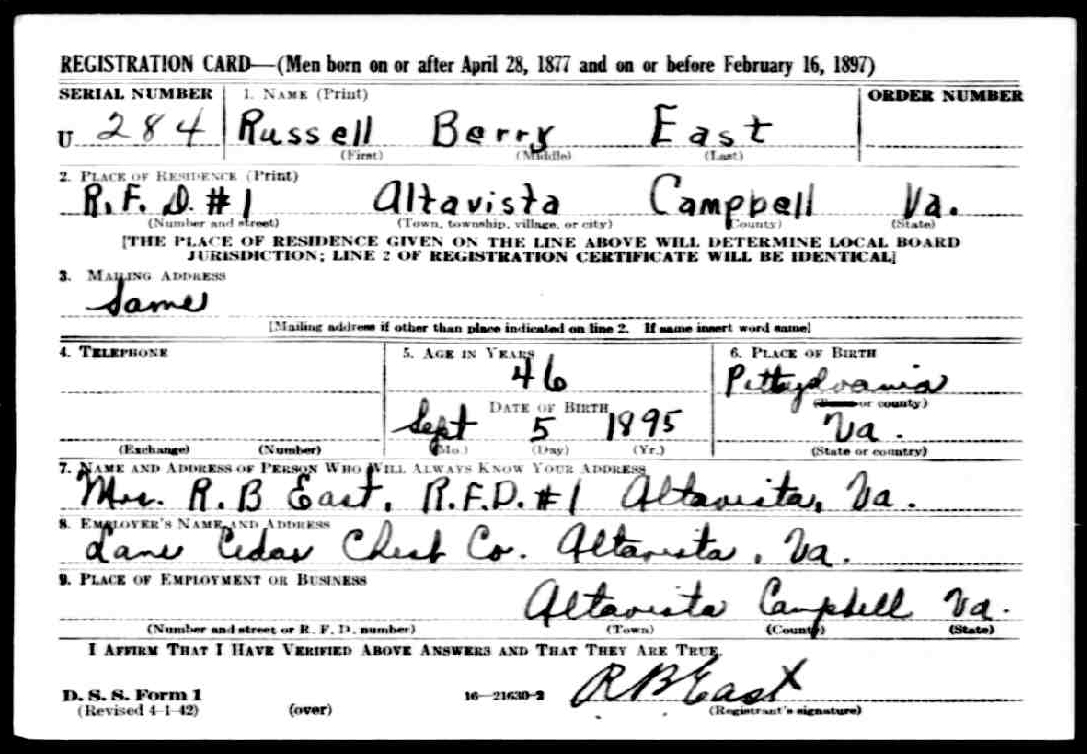 REGISTRATION CARD—(Men born on or after April 28, 1877 and on or before February 16, 1897)
SERIAL NUMBER 1. NAME (Print) ORDER NUMBER
U 284 Russell Berry East
(First) (Middle) (Last)
2. PLACE OF RESIDENCE (Print)
R.F.D. #1 Altavista Campbell Va.
(Number and street) (Town, township, village, or city) (County) (State)
[THE PLACE OF RESIDENCE GIVEN ON THE LINE ABOVE WILL DETERMINE LOCAL BOARD
JURISDICTION; LINE 2 OF REGISTRATION CERTIFICATE WILL BE IDENTICAL]
3. MAILING ADDRESS
Same
[Mailing address if other than place indicated on line 2. If same insert word same]
4. TELEPHONE 5. AGE IN YEARS 6. PLACE OF BIRTH
46 Pittsylvania
DATE OF BIRTH (or county)
Sept 5 1895 Va.
(Exchange) (Number) (Mo.) (Day) (Yr.) (State or country)
7. NAME AND ADDRESS OF PERSON WHO WILL ALWAYS KNOW YOUR ADDRESS
Mrs. R. B East, R.F.D. #1 Altavista, Va.
8. EMPLOYER'S NAME AND ADDRESS
Lane Cedar Chest Co. Altavista, Va.
9. PLACE OF EMPLOYMENT OR BUSINESS
Altavista Campbell Va.
(Number and street or R. F. D. number) (Town) (County) (State)
I AFFIRM THAT I HAVE VERIFIED ABOVE ANSWERS AND THAT THEY ARE TRUE.
D. S. S. Form 1 16—21630-2 R B East
(Revised 4-1-42) (over) (Registrant's signature)